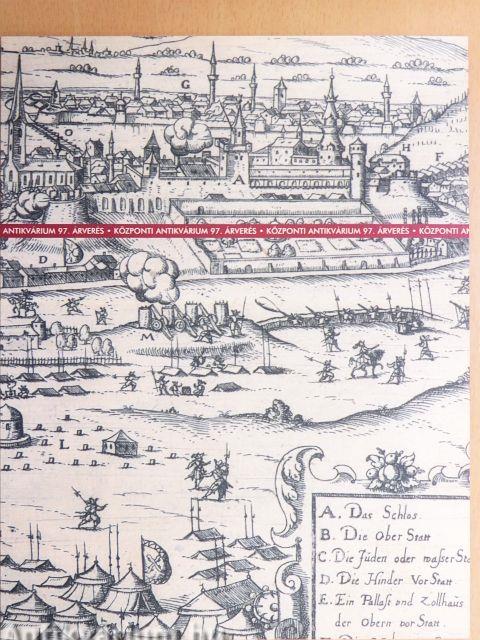 G
O
H
F
A
ANTIKVÁRIUM 97. ÁRVERÉS • KÖZPONTI ANTIKVÁRIUM 97. ÁRVERÉS • KÖZPONTI ANTIKVÁRIUM 97. ÁRVERÉS • KÖZPONTI AN
D
M
L
A. Das Schlos.
B. Die Ober Statt
C. Die Jüden oder waſser Sta
D. Die Hinder Vor Statt
E. Ein Pallaſt vnd Zollhauſ
der Obern vor Statt.